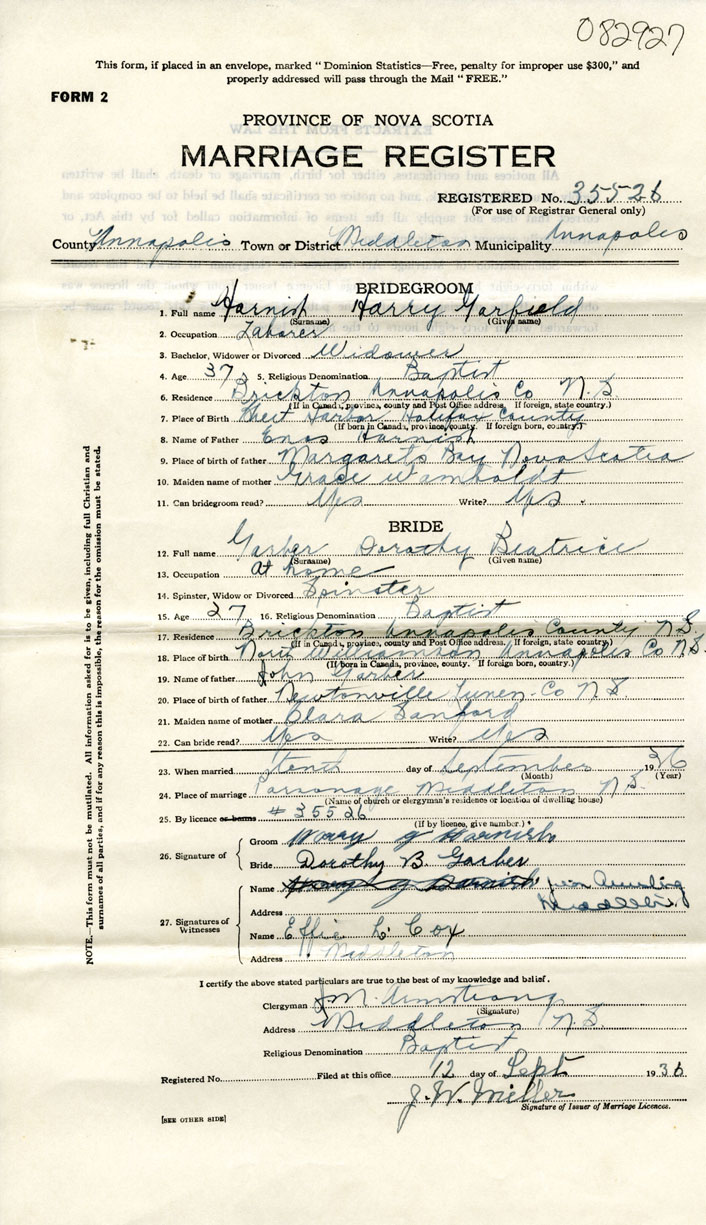 082927
This form, if placed in an envelope, marked "Dominion Statistics—Free, penalty for improper use $300," and
properly addressed will pass through the Mail "FREE."
FORM 2
PROVINCE OF NOVA SCOTIA
MARRIAGE REGISTER
REGISTERED No. 35526
(For use of Registrar General only)
County Annapolis Town or District Middleton Municipality Annapolis
BRIDEGROOM
1. Full name Harnish Harry Garfield
(Surname) (Given name)
2. Occupation Laborer
3. Bachelor, Widower or Divorced Widower
4. Age 37 5. Religious Denomination Baptist
6. Residence Brickton Annapolis Co N.S.
(If in Canada, province, county and Post Office address. If foreign, state country.)
7. Place of Birth West Harbor Halifax County
(If born in Canada, province, county. If foreign born, country.)
8. Name of Father Enos Harnish
9. Place of birth of father Margarets Bay Nova Scotia
10. Maiden name of mother Grace Wamboldt
11. Can bridegroom read? Yes Write? Yes
BRIDE
12. Full name Garber Dorothy Beatrice
(Surname) (Given name)
13. Occupation At home
14. Spinster, Widow or Divorced Spinster
15. Age 27 16. Religious Denomination Baptist
17. Residence Brickton Annapolis County N.S.
(If in Canada, province, county and Post Office address. If foreign, state country.)
18. Place of birth Williamson Annapolis Co N.S.
(If born in Canada, province, county. If foreign born, country.)
19. Name of father John Garber
20. Place of birth of father Newtonville Lunen. Co N S
21. Maiden name of mother Clara Sanford
22. Can bride read? Yes Write? Yes
23. When married tenth day of September 1936
(Month) (Year)
24. Place of marriage Parsonage Middleton N.S.
(Name of church or clergyman's residence or location of dwelling house)
25. By licence or banns # 35526
(If by licence, give number.)
26. Signature of
Groom Harry G Harnish
Bride Dorothy B. Garber
27. Signatures of Witnesses
Name
Address Middleton
Name Effie L. Cox
Address Middleton
I certify the above stated particulars are true to the best of my knowledge and belief.
Clergyman J.M. Armstrong
(Signature)
Address Middleton N.S.
Religious Denomination Baptist
Registered No. Filed at this office 12 day of Sept 1936
J. W. Miller
Signature of Issuer of Marriage Licences.
[SEE OTHER SIDE]
NOTE.—This form must not be mutilated. All information asked for is to be given, including full Christian and
surnames of all parties, and if for any reason this is impossible, the reason for the omission must be stated.